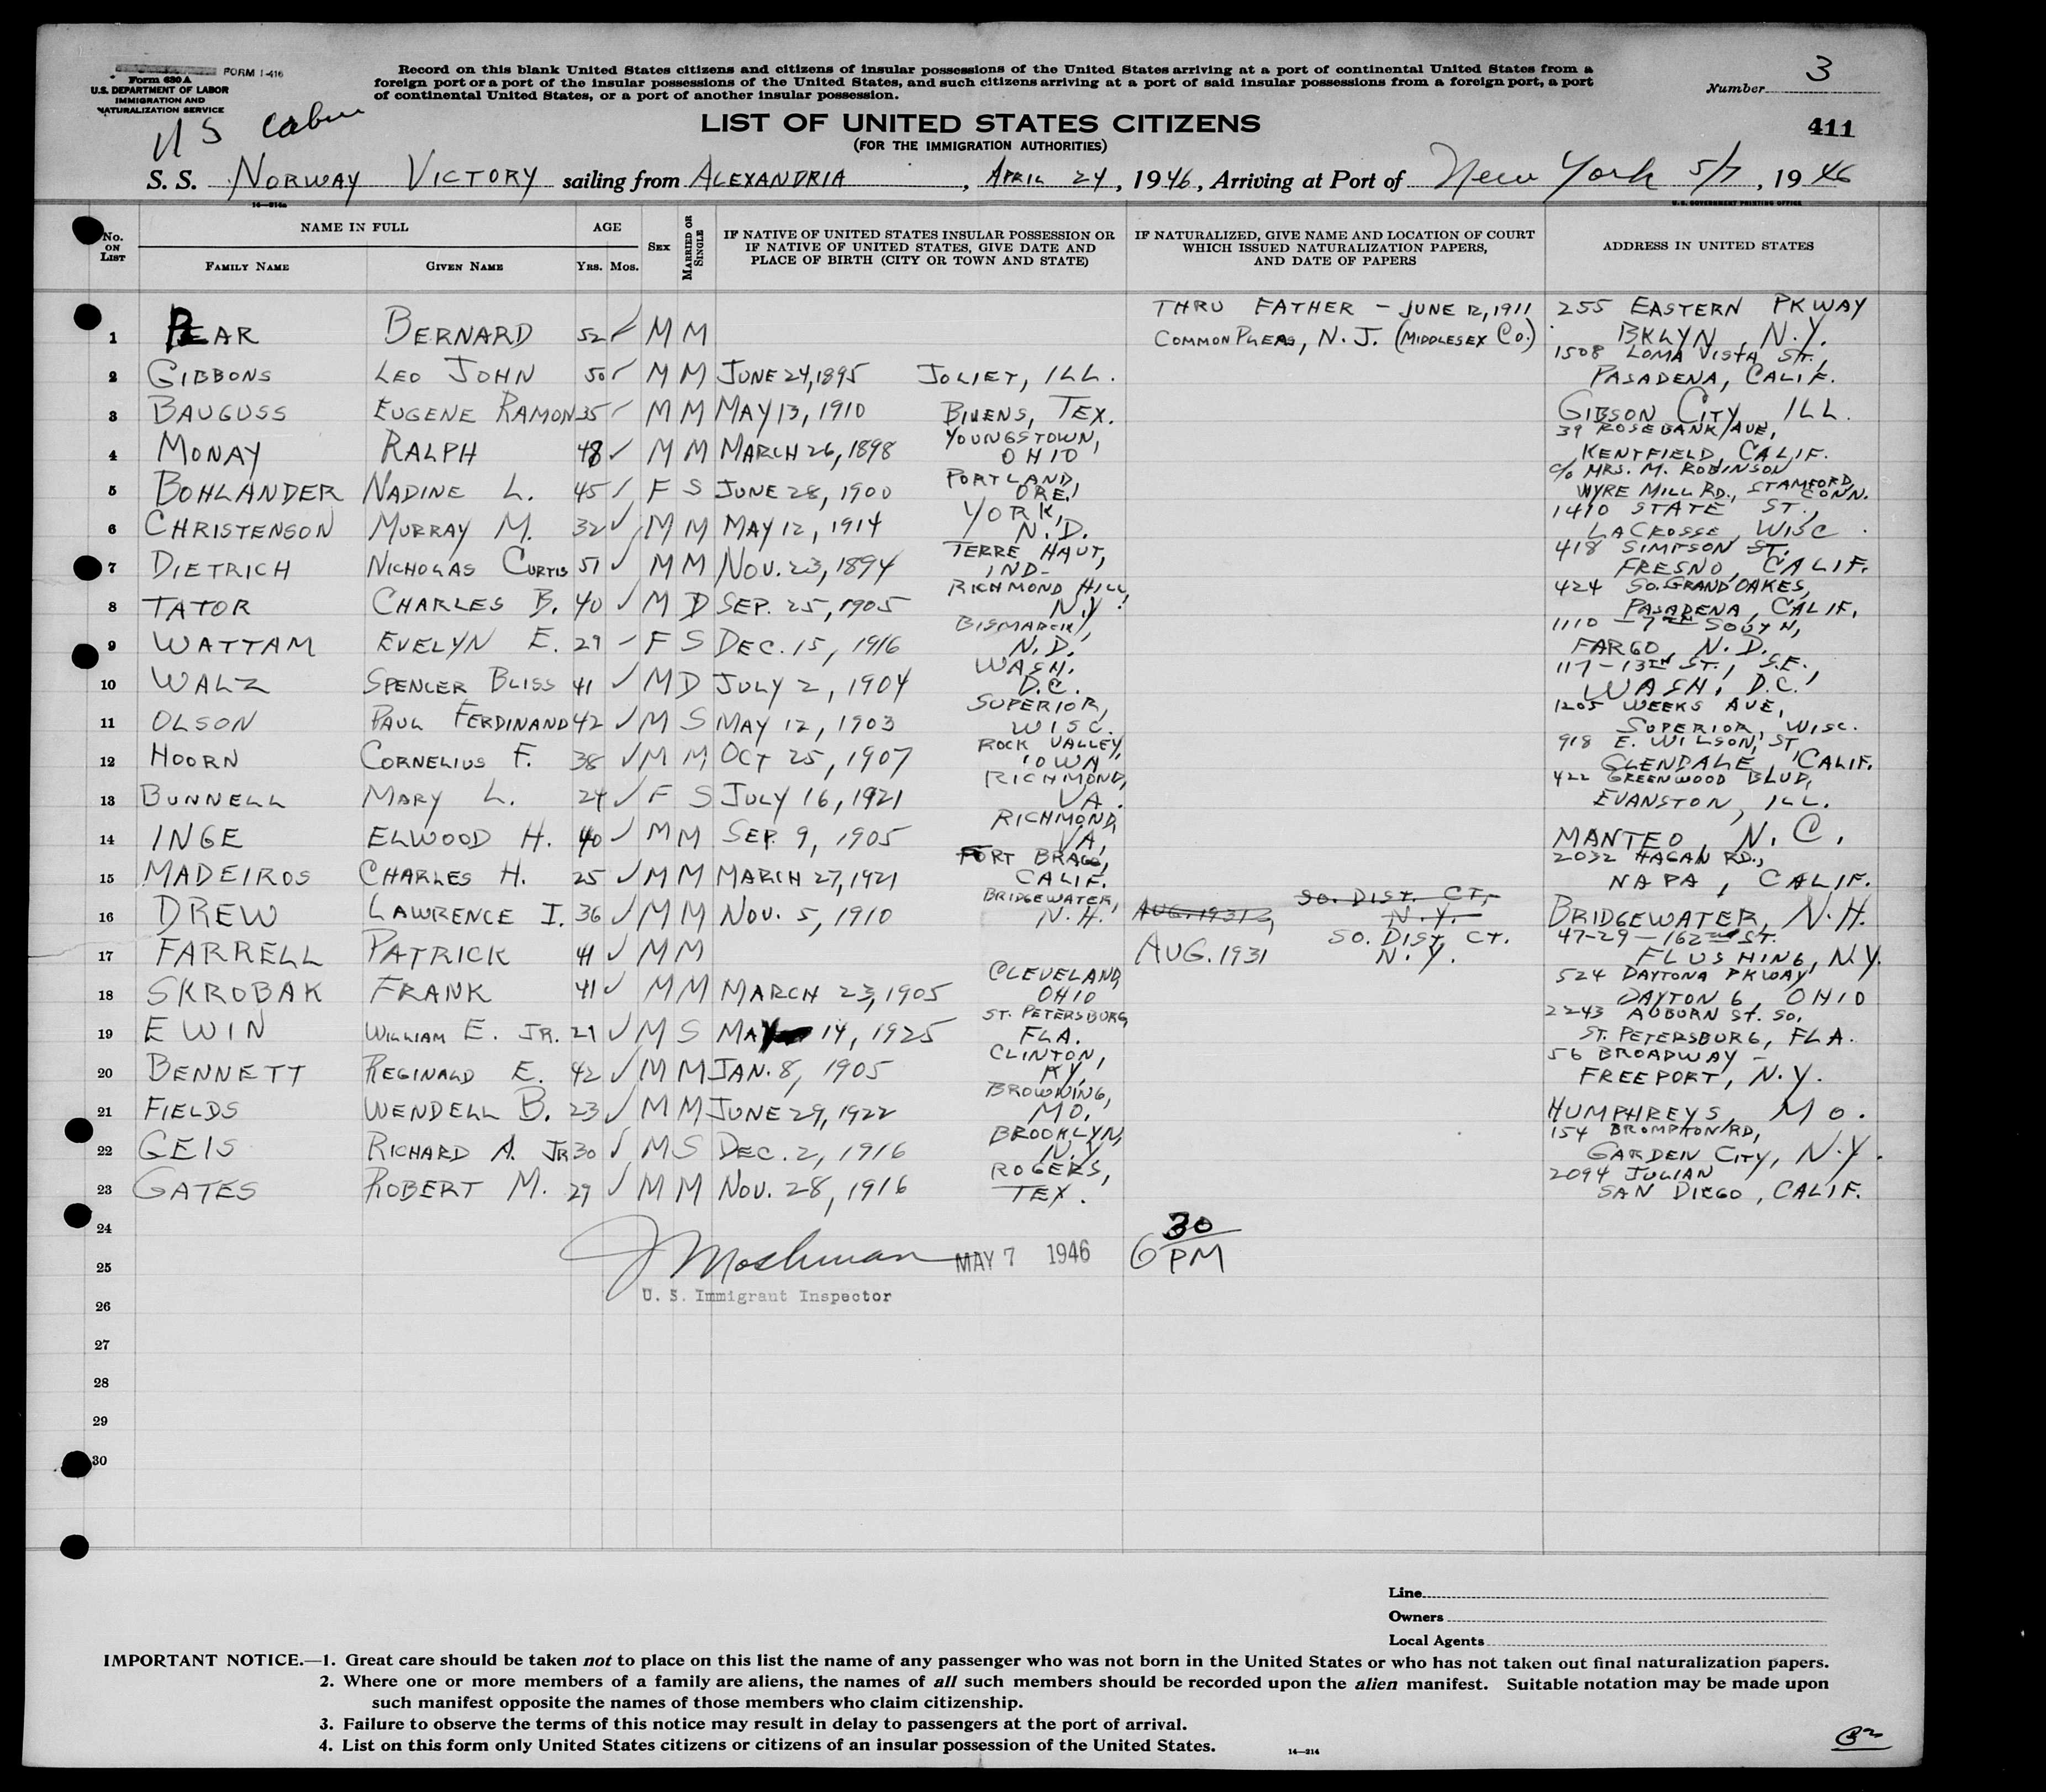 FORM I-416
Form 630 A
U.S. DEPARTMENT OF LABOR
IMMIGRATION AND
NATURALIZATION SERVICE
Record on this blank United States citizens and citizens of insular possessions of the United States arriving at a port of continental United States from a
foreign port or a port of the insular possessions of the United States, and such citizens arriving at a port of said insular possessions from a foreign port, a port
of continental United States, or a port of another insular possession.
Number 3
US Cabin
LIST OF UNITED STATES CITIZENS
(FOR THE IMMIGRATION AUTHORITIES)
411
S. S. NORWAY VICTORY sailing from ALEXANDRIA, APRIL 24, 1946, Arriving at Port of New York 5/7, 1946
14—214a U.S. GOVERNMENT PRINTING OFFICE
No. ON LIST NAME IN FULL FAMILY NAME GIVEN NAME AGE YRS. MOS. SEX MARRIED OR SINGLE
IF NATIVE OF UNITED STATES INSULAR POSSESSION OR
IF NATIVE OF UNITED STATES, GIVE DATE AND
PLACE OF BIRTH (CITY OR TOWN AND STATE)
IF NATURALIZED, GIVE NAME AND LOCATION OF COURT
WHICH ISSUED NATURALIZATION PAPERS,
AND DATE OF PAPERS
ADDRESS IN UNITED STATES
1 BERNARD 52 M M THRU FATHER - JUNE 12, 1911 COMMON PLEAS, N. J. (MIDDLESEX CO.) 255 EASTERN PKWAY BKLYN, N.Y.
2 GIBBONS LEO JOHN 50 M M JUNE 24, 1895 JOLIET, ILL. 1508 LOMA VISTA ST., PASADENA, CALIF.
3 BAUGUSS EUGENE RAMON 35 M M MAY 13, 1910 TEX. GIBSON CITY ILL.
4 MONAY RALPH 48 M M MARCH 26, 1898 YOUNGSTOWN, OHIO 39 ROSEBANK AVE, KENTFIELD, CALIF.
5 BOHLANDER NADINE L. 45 F S JUNE 28, 1900 PORTLAND, ORE. c/o MRS. M. ROBINSON WYRE MILL RD., STAMFORD, CONN.
6 CHRISTENSON MURRAY M. 32 M M MAY 12, 1914 YORK, N.D. 1410 STATE ST., LACROSSE, WISC.
7 DIETRICH NICHOLAS CURTIS 51 M M NOV. 23, 1894 TERRE HAUT, IND- 418 SIMPSON ST. FRESNO, CALIF.
8 TATOR CHARLES B. 40 M D SEP. 25, 1905 RICHMOND HILL, N.Y. 424 SO. GRAND OAKES, PASADENA, CALIF.
9 WATTAM EVELYN E. 29 F S DEC. 15, 1916 BISMARCK, N.D. 1110 - 7TH SOUTH, FARGO, N.D.
10 WALZ SPENCER BLISS 41 M D JULY 2, 1904 WASH. D.C. 117-13TH ST., S.E., WASH, D.C.
11 OLSON PAUL FERDINAND 42 M S MAY 12, 1903 SUPERIOR, WISC. 1205 WEEKS AVE, SUPERIOR, WISC.
12 HOORN CORNELIUS F. 38 M M OCT 25, 1907 ROCK VALLEY, IOWA 918 E. WILSON, ST GLENDALE, CALIF.
13 BUNNELL MARY L. 24 F S JULY 16, 1921 RICHMOND, VA. 422 GREENWOOD BLVD, EVANSTON, ILL.
14 INGE ELWOOD H. 40 M M SEP. 9, 1905 RICHMOND, VA, MANTEO, N.C.
15 MADEIROS CHARLES H. 25 M M MARCH 27, 1921 FORT BRAGG, CALIF. 2032 HAGAN RD., NAPA, CALIF.
16 DREW LAWRENCE I. 36 M M NOV. 5, 1910 BRIDGEWATER, N.H. AUG. 1931, SO. DIST. CT, N.Y. BRIDGEWATER, N.H.
17 FARRELL PATRICK 41 M M AUG. 1931 SO. DIST. CT. N.Y. 47-29-162nd ST. FLUSHING, N.Y.
18 SKROBAK FRANK 41 M M MARCH 23, 1905 CLEVELAND, OHIO 524 DAYTONA PKWAY DAYTON 6, OHIO
19 EWIN WILLIAM E. JR. 21 M S MAY 14, 1925 ST. PETERSBURG, FLA. 2243 AUBORN ST. SO. ST. PETERSBURG, FLA.
20 BENNETT REGINALD E. 42 M M JAN. 8, 1905 CLINTON, KY, 56 BROADWAY - FREEPORT, N.Y.
21 FIELDS WENDELL B. 23 M M JUNE 29, 1922 BROWNING, MO. HUMPHREYS, MO.
22 GEIS RICHARD A. JR 30 M S DEC. 2, 1916 BROOKLYN, N.Y. 154 BROMPTON RD, GARDEN CITY, N.Y.
23 GATES ROBERT M. 29 M M NOV. 28, 1916 ROGERS, TEX. 2094 JULIAN SAN DIEGO, CALIF.
24
25 J Moshman MAY 7 1946 6 30 PM
U. S. Immigrant Inspector
26
27
28
29
30
Line
Owners
Local Agents
IMPORTANT NOTICE.—1. Great care should be taken not to place on this list the name of any passenger who was not born in the United States or who has not taken out final naturalization papers.
2. Where one or more members of a family are aliens, the names of all such members should be recorded upon the alien manifest. Suitable notation may be made upon
such manifest opposite the names of those members who claim citizenship.
3. Failure to observe the terms of this notice may result in delay to passengers at the port of arrival.
4. List on this form only United States citizens or citizens of an insular possession of the United States.
14—214